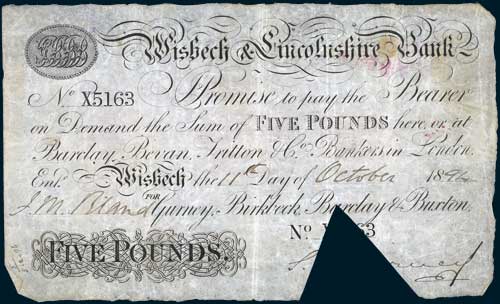 Wisbech & Lincolnshire Bank
No. X5163 Promise to pay the Bearer
on Demand the Sum of FIVE POUNDS here, or at
Barclay, Bevan, Tritton & Co. Bankers in London.
Entd. Wisbech the 11th Day of October 1894
FOR
J. M. Bland Gurney, Birkbeck, Barclay & Buxton.
No 63
FIVE POUNDS.